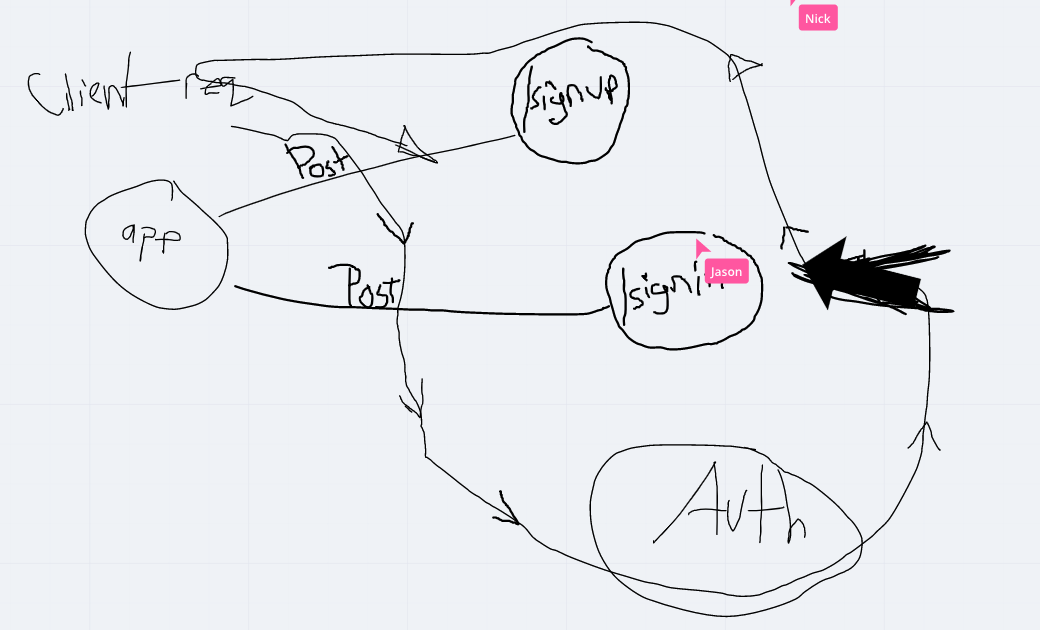 Nick
Client req
/signup
Post
app
Jason
/signin
Post
Auth